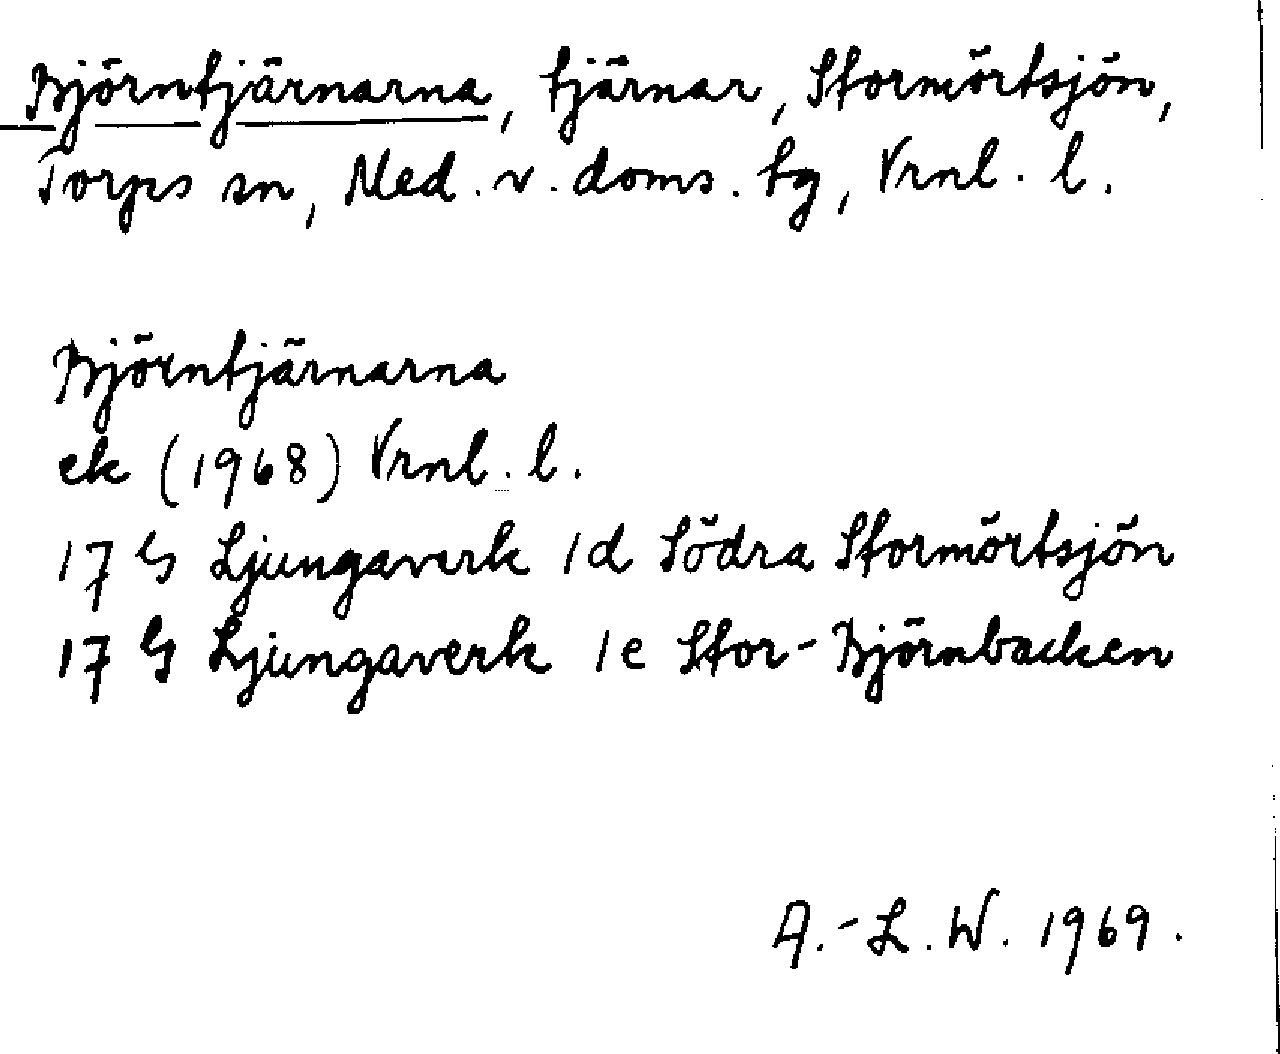 Björntjärnarna, tjärnar, Stormörtsjön,
Torps sn, Med. v. doms. tg, Vrnl. l.
Björntjärnarna
ek (1968) Vrnl. l.
17 G Ljungaverk 1d Södra Stormörtsjön
17 G Ljungaverk 1e Stor-Björnbacken
A.-L. W. 1969.